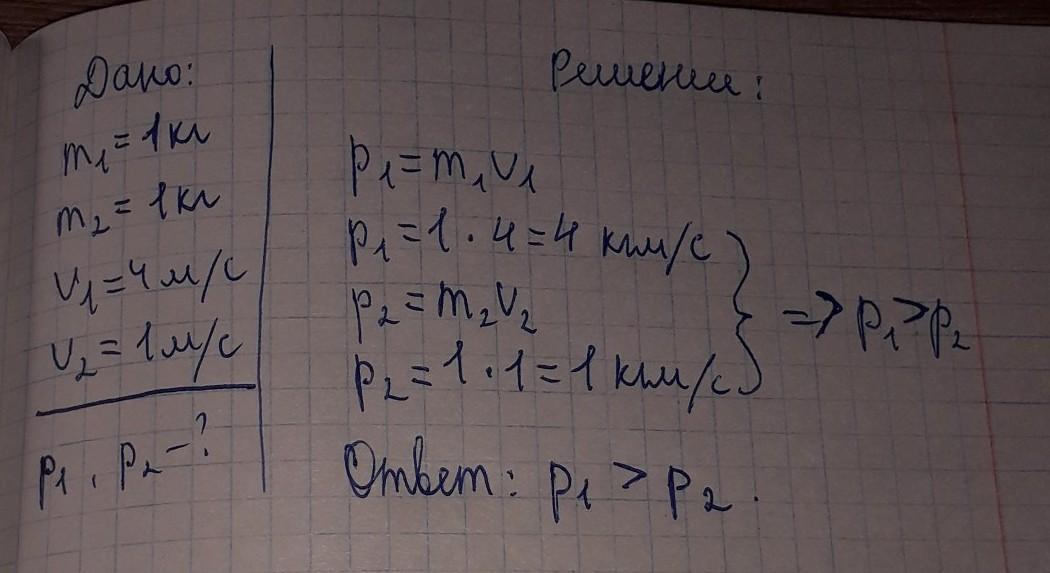 Дано:
m₁ = 1кг
m₂ = 1кг
v₁ = 4м/с
v₂ = 1м/с
p₁, p₂ – ?
Решение:
p₁ = m₁v₁
p₁ = 1 · 4 = 4 кгм/с
p₂ = m₂v₂
p₂ = 1 · 1 = 1 кгм/с
=> p₁ > p₂
Ответ: p₁ > p₂.